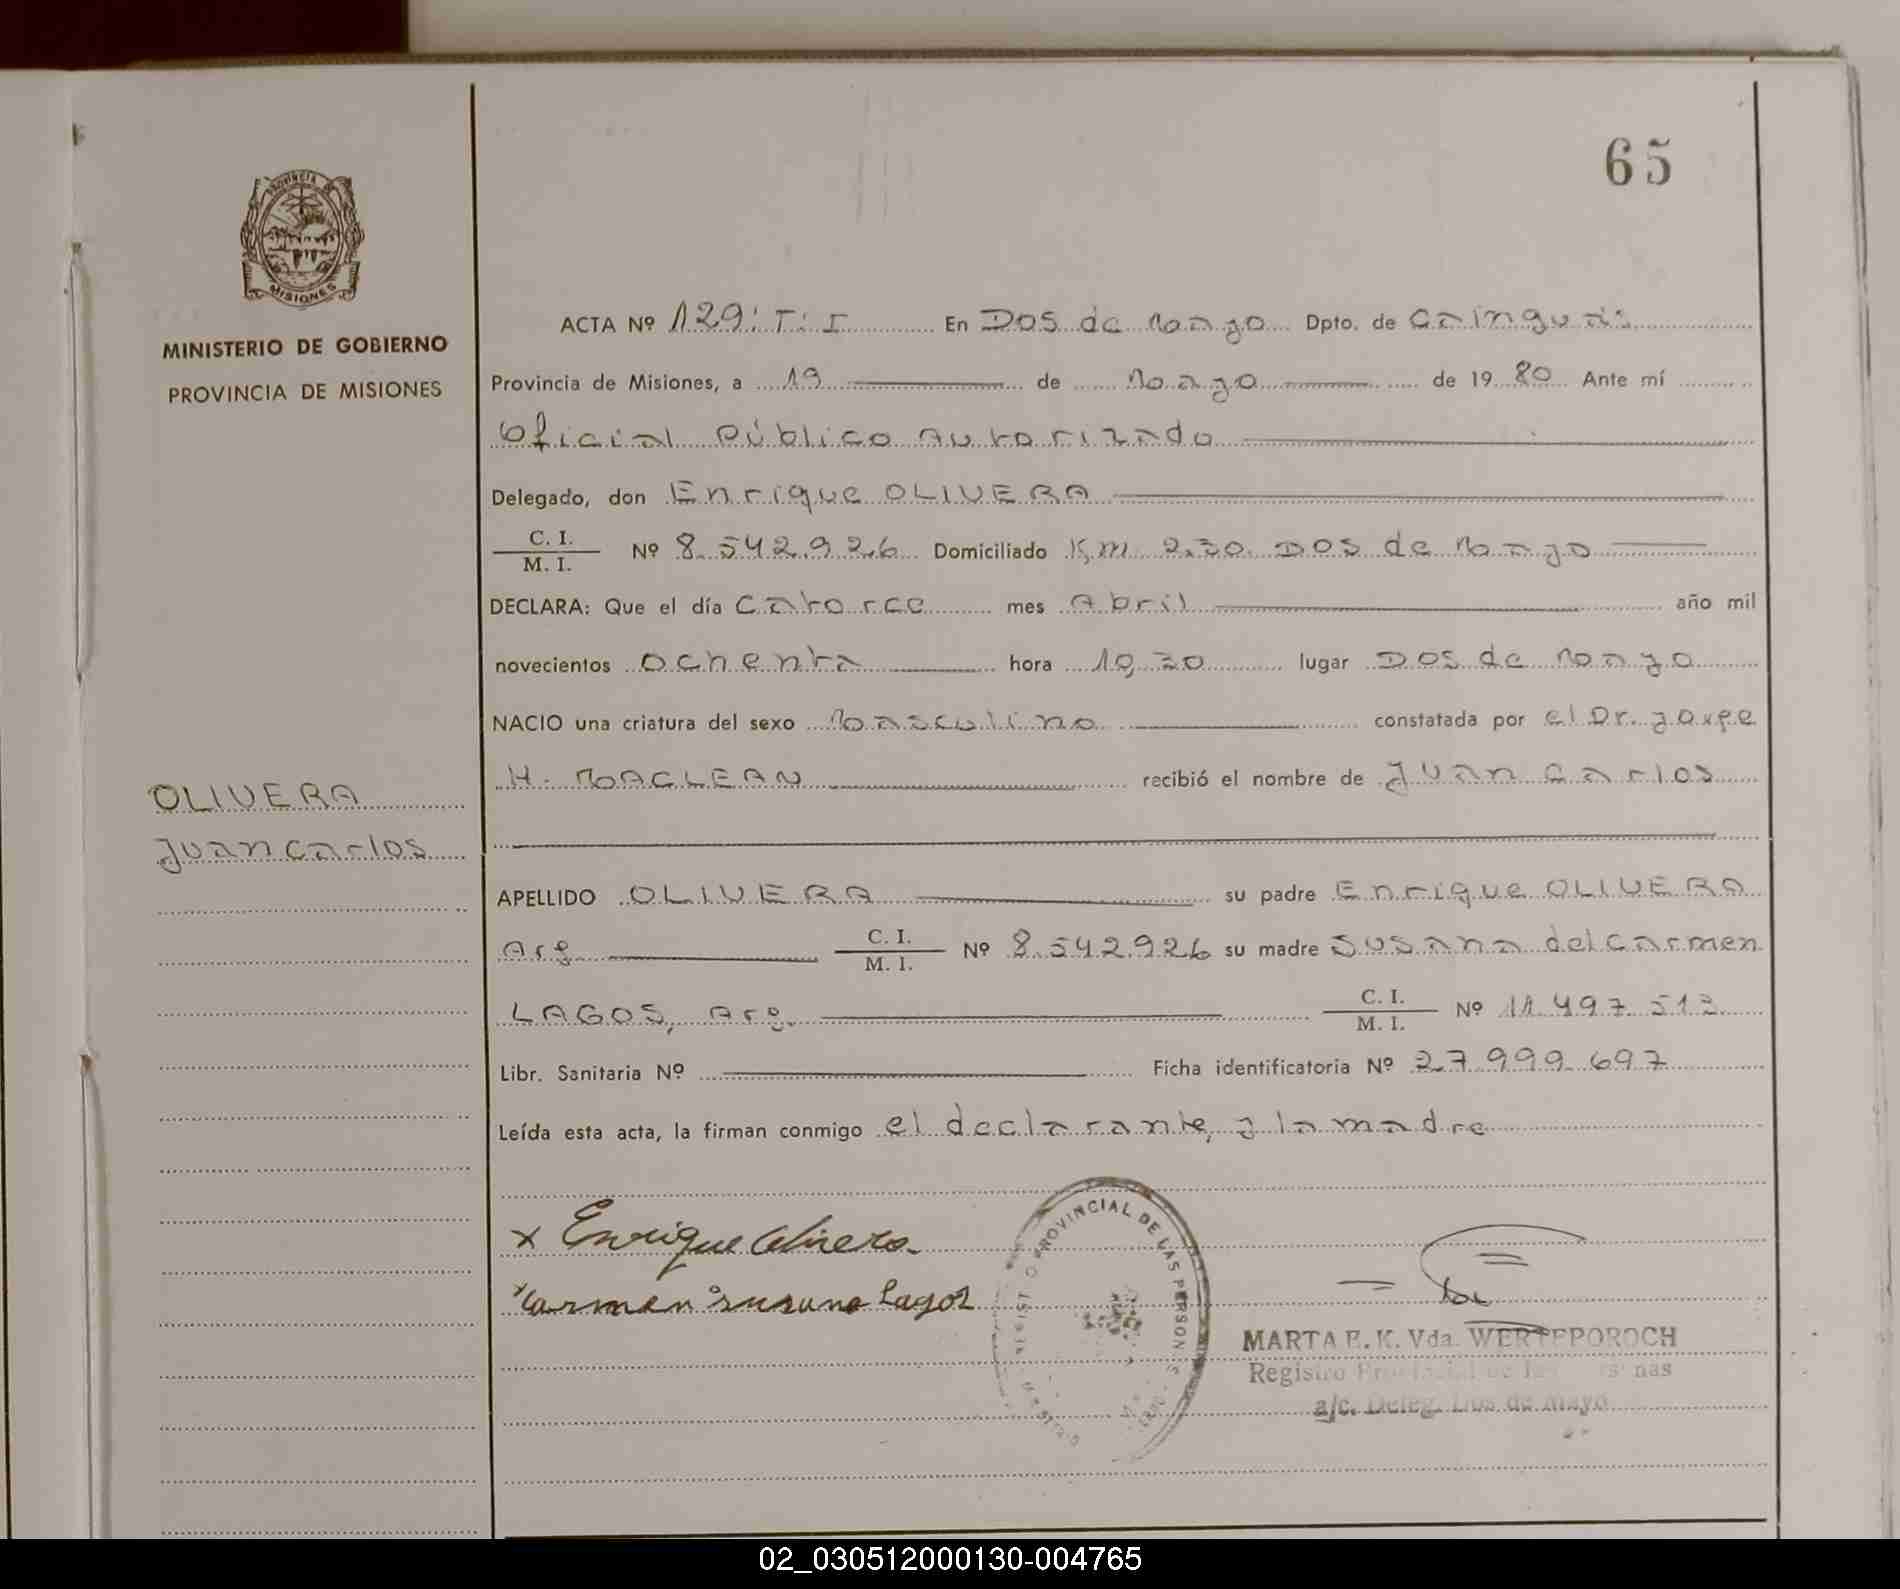 65
PROVINCIA DE
MISIONES
MINISTERIO DE GOBIERNO
PROVINCIA DE MISIONES
ACTA Nº 129: T: I En Dos de Mayo Dpto. de Cainguás
Provincia de Misiones, a 19 de Mayo de 19 80 Ante mí
Oficial Público Autorizado
Delegado, don Enrique OLIVERA
C. I.
M. I. Nº 8.542.926 Domiciliado Km 230 Dos de Mayo
DECLARA: Que el día Catorce mes Abril año mil
novecientos ochenta hora 19,30 lugar Dos de Mayo
NACIO una criatura del sexo Masculino constatada por el Dr. Jorge
H. MACLEAN recibió el nombre de Juan Carlos
OLIVERA
Juan Carlos
APELLIDO OLIVERA su padre Enrique OLIVERA
Arg. C. I. M. I. Nº 8.542.926 su madre Susana del Carmen
LAGOS, Arg. C. I. M. I. Nº 11.497.513
Libr. Sanitaria Nº Ficha identificatoria Nº 27.999.697
Leída esta acta, la firman conmigo el declarante, y la madre
x Enrique Olivera
x Carmen Susana Lagos
PROVINCIAL DE LAS PERSONAS
MARTA E. K. Vda. WERTEPOROCH
Registro Provincial de las Personas
a/c. Deleg. Dos de Mayo
02_030512000130-004765